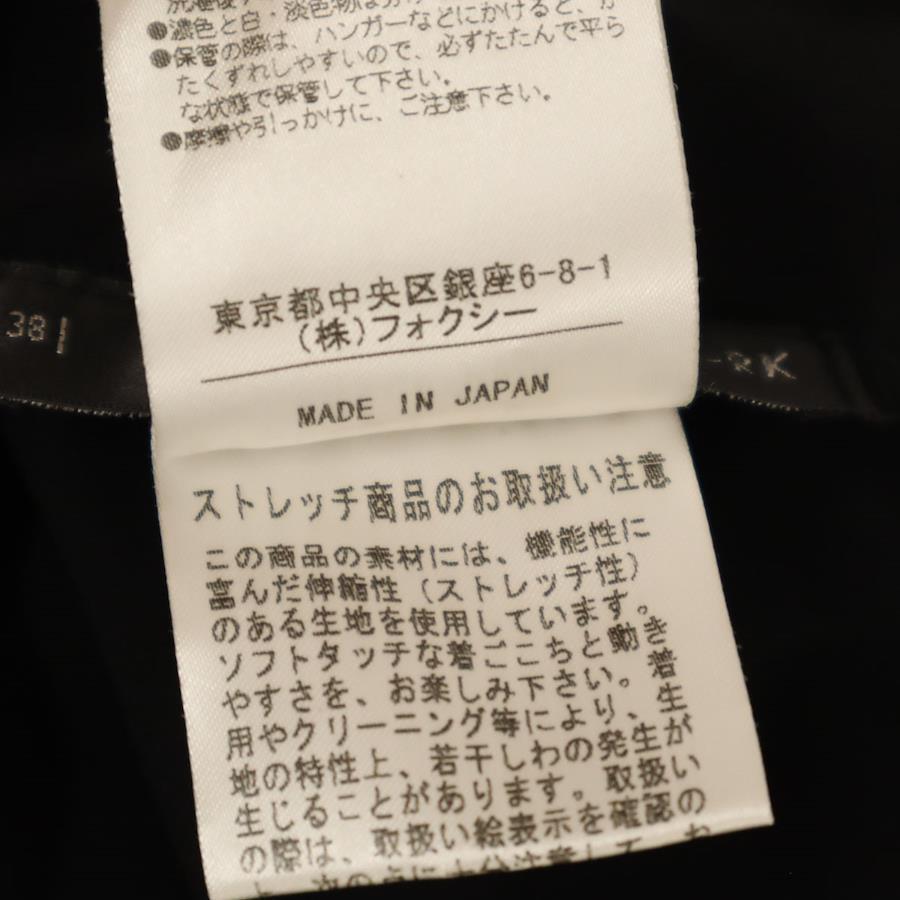 ●濃色と白・淡色物は
●保管の際は、ハンガーなどにかけると、か
たくずれしやすいので、必ずたたんで平ら
な状態で保管して下さい。
●摩擦や引っかけに、ご注意下さい。
東京都中央区銀座6-8-1
(株)フォクシー
MADE IN JAPAN
38
-RK
ストレッチ商品のお取扱い注意
この商品の素材には、機能性に
富んだ伸縮性(ストレッチ性)
のある生地を使用しています。
ソフトタッチな着ごこちと動き
やすさを、お楽しみ下さい。着
用やクリーニング等により、生
地の特性上、若干しわの発生が
生じることがあります。取扱い
の際は、取扱い絵表示を確認の